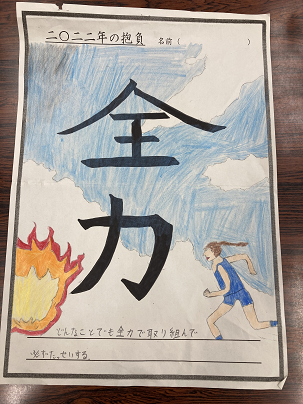 二〇二二年の抱負 名前（ ）
全力
どんなことでも全力で取り組んで